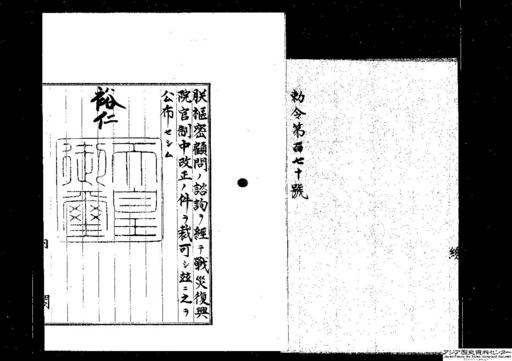 勅令第百七十號
朕樞密顧問ノ諮詢ヲ經テ戰災復興
院官制中改正ノ件ヲ裁可シ茲ニ之ヲ
公布セシム
裕仁
天皇
御璽
内
閣
アジア歴史資料センター